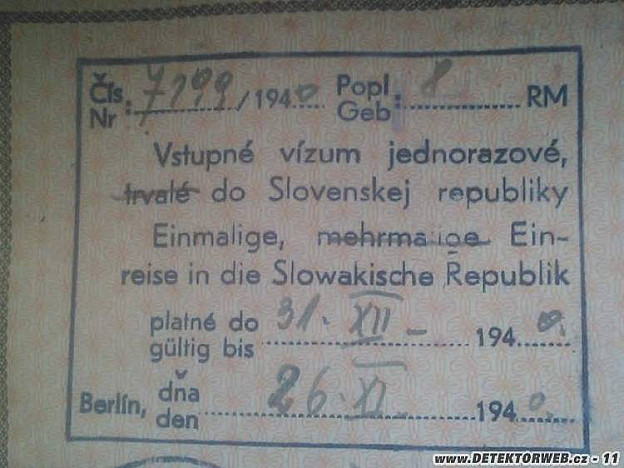 Čís. 7199/1940 Popl. 8 RM
Nr: Geb:
Vstupné vízum jednorazové,
trvalé do Slovenskej republiky
Einmalige, mehrmalige Ein-
reise in die Slowakische Republik
platné do 31. XII – 1940.
gültig bis
Berlín, dňa 26. XI 1940.
den
www.DETEKTORWEB.cz - 11